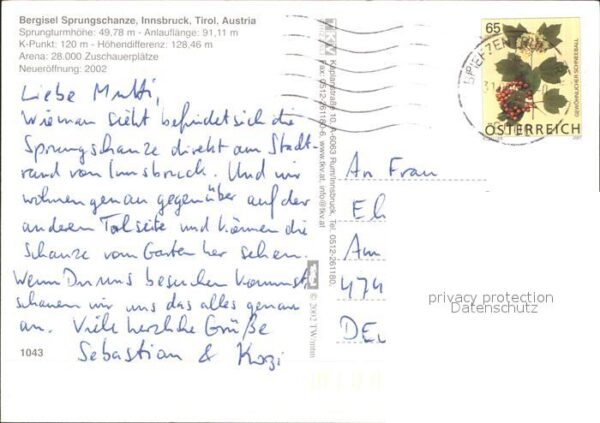 Bergisel Sprungschanze, Innsbruck, Tirol, Austria
Sprungturmhöhe: 49,78 m - Anlauflänge: 91,11 m
K-Punkt: 120 m - Höhendifferenz: 128,46 m
Arena: 28.000 Zuschauerplätze
Neueröffnung: 2002
Liebe Mutti,
Wie man sieht befindet sich die
Sprungschanze direkt am Stadt-
rand von Innsbruck. Und wir
wohnen genau gegenüber auf der
anderen Talseite und können die
Schanze vom Garten her sehen.
Wenn Du uns besuchen kommst
schauen wir uns das alles genau
an. Viele herzliche Grüße
Sebastian &
1043
Kaplanstraße 10, A-6063 Rum/Innsbruck, Tel. 0512-261180,
Fax: 0512-261180-6, www.tkv.at, info@tkv.at
© 2002 TW/mtm
65
GEWÖHNLICHER SCHNEEBALL
ÖSTERREICH
BRIEFZENTRUM
An Frau
El
Am
474
DEU
privacy protection
Datenschutz